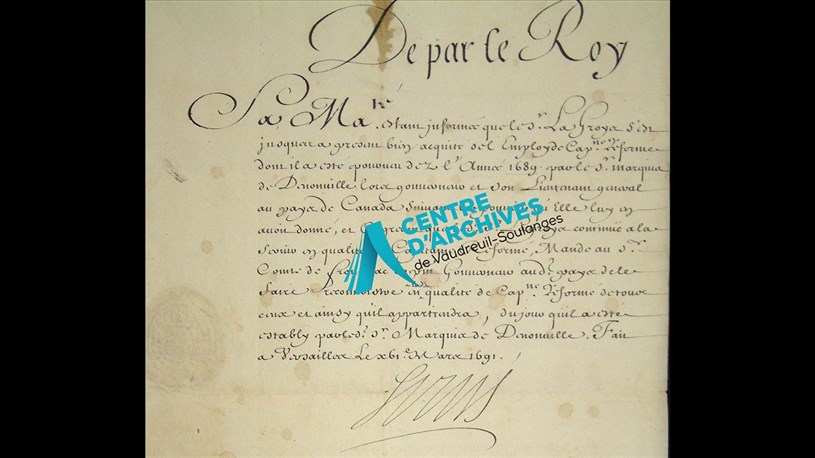 De par le Roy
Sa Ma.té estant informée que le S.r La Troye s'est
jusques a present bien acquité de l'Employ de Cap.ne Réformé
dont il a esté pourveu dez l'Année 1689. par le S.r marquis
de Denonville lors gouverneur et son Lieutenant general
au pays de Canada suivant le pouvoir qu'Elle luy en
avoit donné, et continue a la
servir en qualité de Capitaine Réformé, Mande au S.r
Comte de Gouverneur aud. pays de le
faire Reconnoistre en qualité de Cap.ne Réformé de tous
ceux et ainsy qu'il appartiendra, du jour qu'il a esté
estably par led. S.r Marquis de Denonville. Fait
a Versailles Le xvi.e Mars 1691.
Louis
CENTRE
D'ARCHIVES
de Vaudreuil-Soulanges